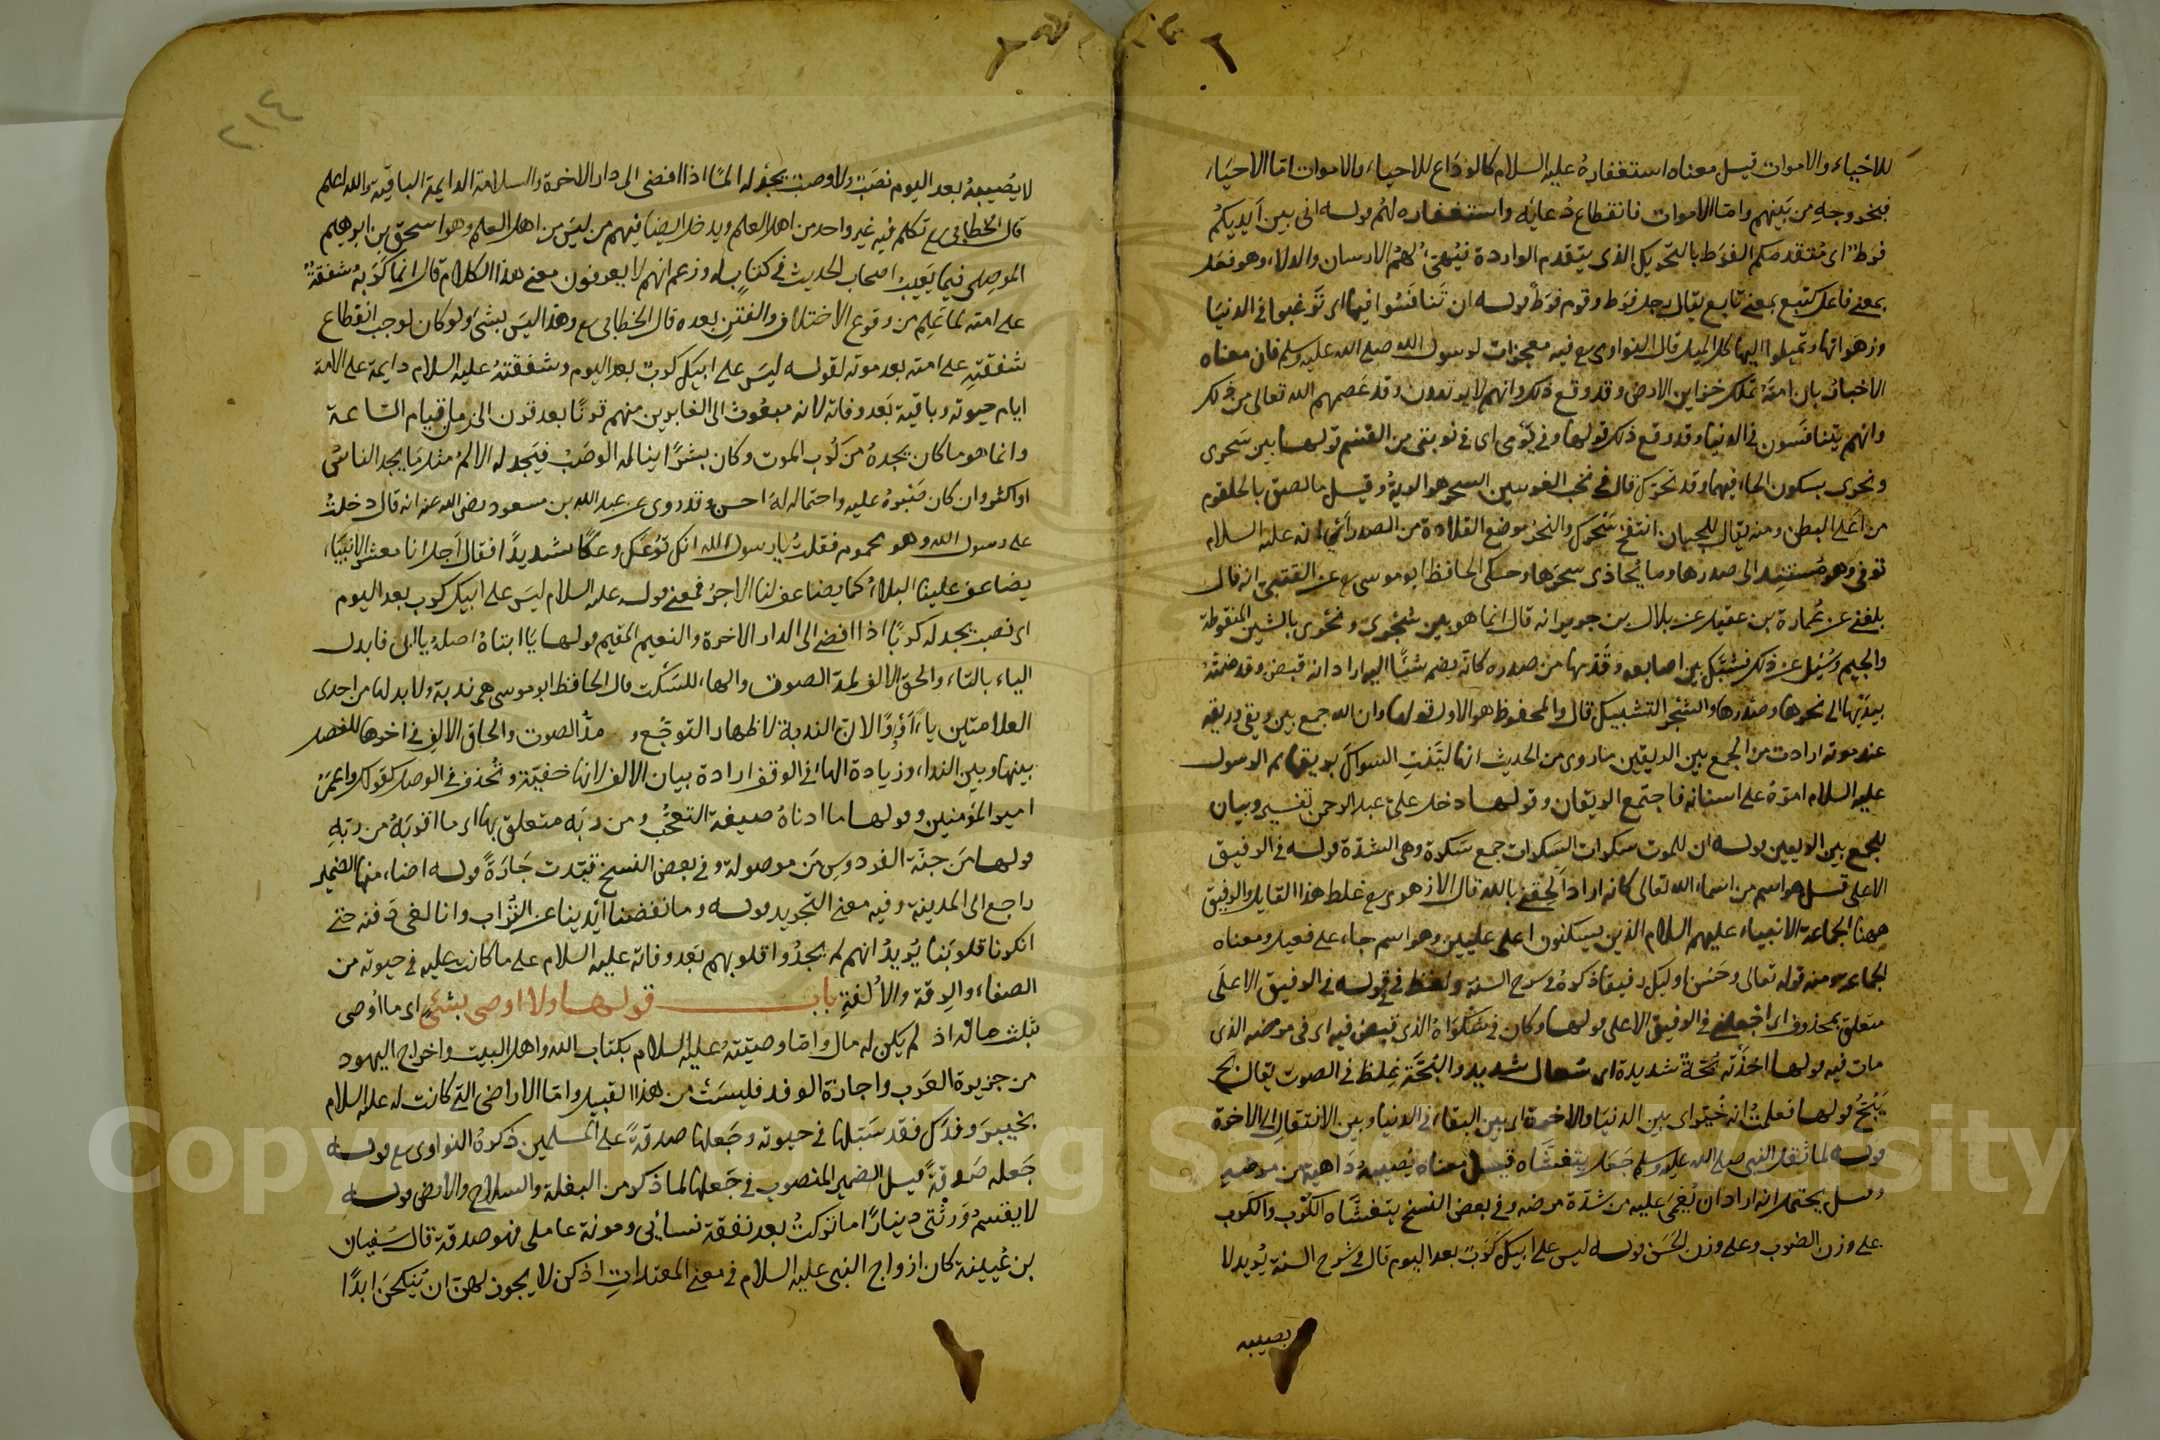 للاحياء والاموات قيل معناه استغفاره عليه السلام كالوداع للاحياء والاموات اما الاحياء
فبخروجه من بينهم واما الاموات فانقطاع دعايه واستغفاره لهم قوله اني بين ايديكم
فرط اي متقدمكم الفرط بالتحريك الذي يتقدم الواردة فيهيئ لهم الارسان والدلاء وهو فعل
بمعنى فاعل كتبع بمعنى تابع يقال رجل فرط وقوم فرط قوله ان تنافسوا فيها اي ترغبوا في الدنيا
وزهراتها وتميلوا اليها كل الميل قال النواوي رع فيه معجزات لرسول الله صلى الله عليه وسلم فان معناه
الاخبار بان امته تملك خزاين الارض وقد وقع ذلك وانهم لا يرتدون وقد عصمهم الله تعالى من ذلك
وانهم يتنافسون في الدنيا وقد وقع ذلك قولها وفي يومي اي في نوبتي من القسم قولها بين سحري
ونحري بسكون الحاء فيهما وقد تحرك قال في نخب الغريبين السحر هو الرية وقيل ما لصق بالحلقوم
من اعلى البطن ومنه يقال للجبان انتفخ سحرك والنحر موضع القلادة من الصدر اي انه عليه السلام
توفي وهو مستند الى صدرها وما يحاذي سحرها وحكى الحافظ ابو موسى رع عن القتبي انه قال
بلغني عن عمارة بن عقيل عن بلال بن جرير انه قال انما هو بين شجري ونحري بالشين المنقوطة
والجيم وسئل عن ذلك فشبك بين اصابعه وقدمها من صدره كانه يضم شيئا اليه اراد انه قبض وقد ضمته
بيديها الى نحرها وصدرها والشجر التشبيك قال والمحفوظ هو الاول قولها وان الله جمع بين ريقي وريقه
عند موته ارادت من الجمع بين الريقين ما روي من الحديث انها لينت السواك بريقها ثم الرسول
عليه السلام امره على اسنانه فاجتمع الريقان وقولها دخل علي عبد الرحمن تفسير وبيان
للجمع بين الريقين قوله ان للموت سكرات السكرات جمع سكرة وهي الشدة قوله في الرفيق
الاعلى قيل هو اسم من اسماء الله تعالى كانه اراد الحقني بالله قال الازهري رع غلط هذا القايل والرفيق
ههنا الجماعة الانبياء عليهم السلام الذين يسكنون اعلى عليين وهو اسم جاء على فعيل ومعناه
الجماعة ومنه قوله تعالى وحسن اوليك رفيقا ذكره في شرح السنة ولفظ في في قوله في الرفيق الاعلى
متعلق بمحذوف اي اجعلني في الرفيق الاعلى قولها وكان في شكواه الذي قبض فيه اي في مرضه الذي
مات فيه قولها اخذته بحة شديدة اي سعال شديد والبحة غلظ في الصوت يقال بح
يبح قولها فعلمت انه خير اي بين الدنيا والاخرة اي بين البقاء في الدنيا وبين الانتقال الى الاخرة
قوله لما ثقل النبي صلى الله عليه وسلم جعل يتغشاه قيل معناه يصيبه داهية من مرضه
وقيل يحتمل انه اراد ان يغمى عليه من شدة مرضه وفي بعض النسخ يتغشاه الكرب والكرب
على وزن الضرب وعلى وزن الحسن قوله ليس على ابيك كرب بعد اليوم قال في شرح السنة يريد لا
يصيبه
٢١٤
لا يصيبه بعد اليوم نصب ولا وصب يجد له الما اذا افضى الى دار الاخرة والسلامة الدايمة الباقية والله اعلم
قال الخطابي رع تكلم فيه غير واحد من اهل العلم ويدخل ايضا فيهم من ليس من اهل العلم وهو اسحق بن ابرهيم
الموصلي فيما يعيب اصحاب الحديث في كتاب له وزعم انهم لا يعرفون معنى هذا الكلام قال انما كربه شفقة
على امته لما علم من وقوع الاختلاف والفتن بعده قال الخطابي رع وهذا ليس بشئ ولو كان لوجب انقطاع
شفقته على امته بعد موته لقوله ليس على ابيك كرب بعد اليوم وشفقته عليه السلام دايمة على الامة
ايام حيوته وباقية بعد وفاته لانه مبعوث الى الغابرين منهم قرنا بعد قرن الى زمان قيام الساعة
وانما هو ما كان يجده من كرب الموت وكان بشرا يناله الوصب فيجد له الالم مثل ما يجد الناس
او اكثر وان كان صبره عليه واحتماله له احسن وقد روي عن عبد الله بن مسعود رضي الله عنه انه قال دخلت
على رسول الله وهو محموم فقلت يا رسول الله انك توعك وعكا شديدا فقال اجل انا معشر الانبياء
يضاعف علينا البلاء كما يضاعف لنا الاجر فمعنى قوله عليه السلام ليس على ابيك كرب بعد اليوم
اي نصب يجد له كربا اذا افضى الى الدار الاخرة والنعيم المقيم قولها يا ابتاه اصله يا ابي فابدل
الياء بالتاء والحق الالف لمد الصوت والهاء للسكت قال الحافظ ابو موسى هي ندبة ولا بد لها من احدى
العلامتين يا او وا لان الندبة لاظهار التوجع و مد الصوت والحاق الالف في اخرها للفصل
بينها وبين النداء وزيادة الهاء في الوقف ارادة بيان الالف لانها خفية وتحذف في الوصل كقولك وا عمر
امير المؤمنين وقولها ما ادناه صيغة التعجب ومن ربه متعلق بها اي ما اقربه من ربه
قولها من جنة الفردوس من موصولة وفي بعض النسخ قيدت جارة قوله اضاء منها الضمير
راجع الى المدينة وفيه معنى التجريد قوله وما نفضنا ايدينا عن التراب وانا لفي دفنه حتى
انكرنا قلوبنا يريد انهم لم يجدوا قلوبهم بعد وفاته عليه السلام على ما كانت عليه في حيوته من
الصفاء والرقة والالفة باب قولها ولا اوصى بشئ اي ما اوصى
بثلث ماله اذ لم يكن له مال واما وصيته عليه السلام بكتاب الله واهل البيت واخراج اليهود
من جزيرة العرب واجازة الوفد فليست من هذا القبيل واما الاراضي التي كانت له عليه السلام
بخيبر وفدك فقد سبلها في حيوته وجعلها صدقة على المسلمين ذكره النواوي رع قوله
جعله صدقة قيل الضمير المنصوب في جعلها لما ذكر من البغلة والسلاح والارض قوله
لا يقتسم ورثتي دينارا ما تركت بعد نفقة نسايي ومونة عاملي فهو صدقة قال سفيان
بن عيينة كان ازواج النبي عليه السلام في معنى المعتدات اذ كن لا يجوز لهن ان ينكحن ابدا
Copyright © King Saud University